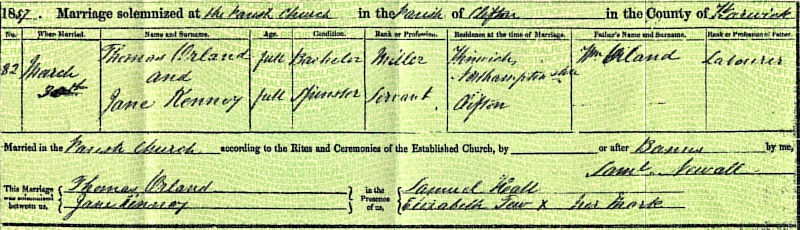 1857. Marriage solemnized at the Parish Church in the Parish of Clifton in the County of Warwick
No. When Married. Name and Surname. Age. Condition. Rank or Profession. Residence at the time of Marriage. Father's Name and Surname. Rank or Profession of Father.
82 March 30th Thomas Orland full Bachelor Miller Northampton shire Wm Orland Labourer
and
Jane Kennoy full Spinster Servant Clifton
Married in the Parish Church according to the Rites and Ceremonies of the Established Church, by or after Banns by me,
Saml. Newall
This Marriage was solemnized between us, Thomas Orland in the Presence of us, Samuel Heall
Jane Kennoy Elizabeth Tew x her mark